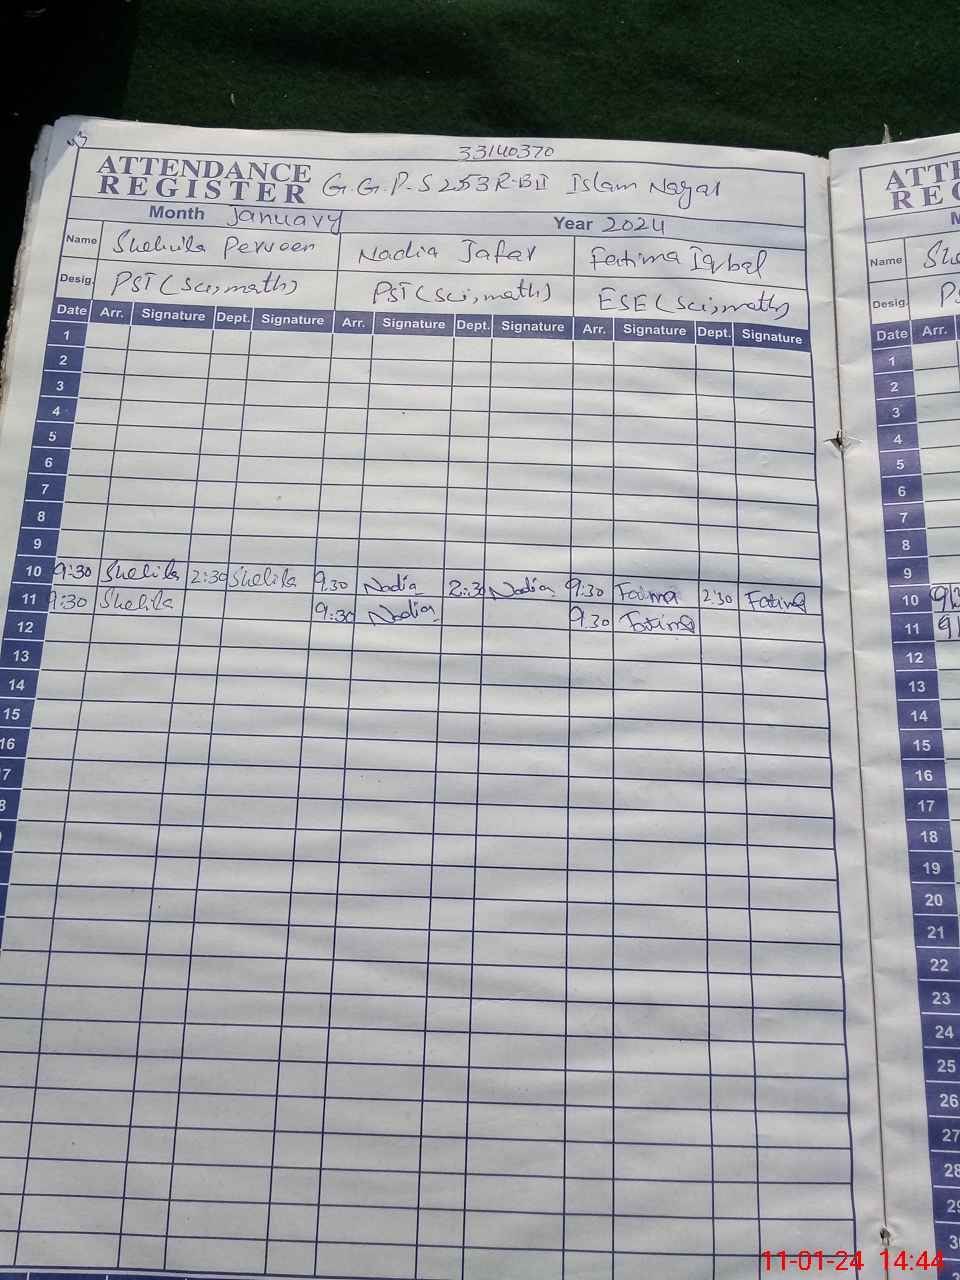 33140370
ATTENDANCE REGISTER G.G.P.S 253 R-B II Islam Nagar
Month January Year 2024
Name Shehila Perveen Nadia Jafar Fatima Iqbal
Desig. PST (Sci, math) PST (Sci, math) ESE (Sci, math)
Date Arr. Signature Dept. Signature Arr. Signature Dept. Signature Arr. Signature Dept. Signature
1
2
3
4
5
6
7
8
9
10 9:30 Shehila 2:30 Shehila 9.30 Nadia 2:30 Nadia 9:30 Fatima 2:30 Fatima
11 9:30 Shehila 9:30 Nadia 9.30 Fatima
12
13
14
15
16
7
8
ATTE
RE
M
Name She
Desig. PS
Date Arr.
1
2
3
4
5
6
7
8
9
10 9:3
11 9
12
13
14
15
16
17
18
19
20
21
22
23
24
25
26
27
28
29
30
11-01-24 14:44